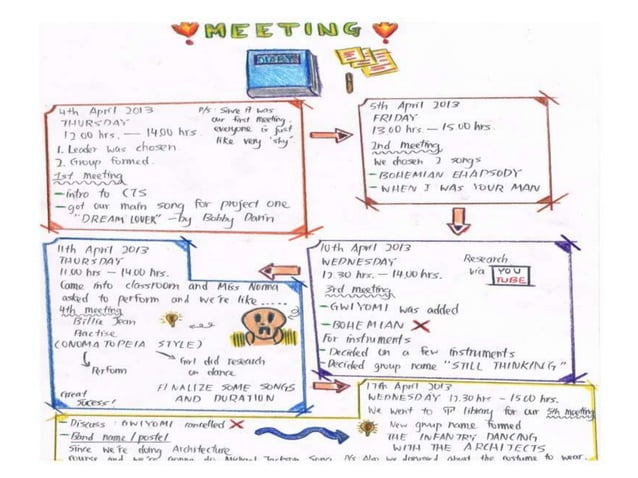 MEETING
DIARY
4th April 2013
THURSDAY
12.00 hrs. — 14.00 hrs.
P/s: Since it was
our first meeting,
everyone is just
like very 'shy'
1. Leader was chosen.
2. Group formed.
1st meeting
- intro to CTS
- got our main song for project one
"DREAM LOVER" - by Bobby Darin
5th April 2013
FRIDAY
13.00 hrs. — 15.00 hrs.
2nd meeting
We chosen 2 songs
- BOHEMIAN RHAPSODY
- WHEN I WAS YOUR MAN
10th April 2013
WEDNESDAY
12.30 hrs. — 14.00 hrs.
Research
via YOU
TUBE
3rd meeting
- GWIYOMI was added
- BOHEMIAN X
For instruments
- Decided on a few instruments
- Decided group name "STILL THINKING"
11th April 2013
THURSDAY
11.00 hrs — 14.00 hrs.
Came into classroom and Miss Norma
asked to perform and we're like .....
4th meeting
Billie Jean
Practise
(ONOMATOPEIA STYLE)
Perform
Girl did research
on dance
Great
Sucess!
FINALIZE SOME SONGS
AND DURATION
17th April 2013
WEDNESDAY 12.30 hr - 15.00 hrs.
We went to library for our 5th meeting
New group name formed
THE INFANTRY DANCING
WITH THE ARCHITECTS
- Discuss : GWIYOMI cancelled X
- Band name / poster
Since we're doing Architecture
course and we're gonna do Michael Jackson Song. P/s Also we discussed about the costume to wear.